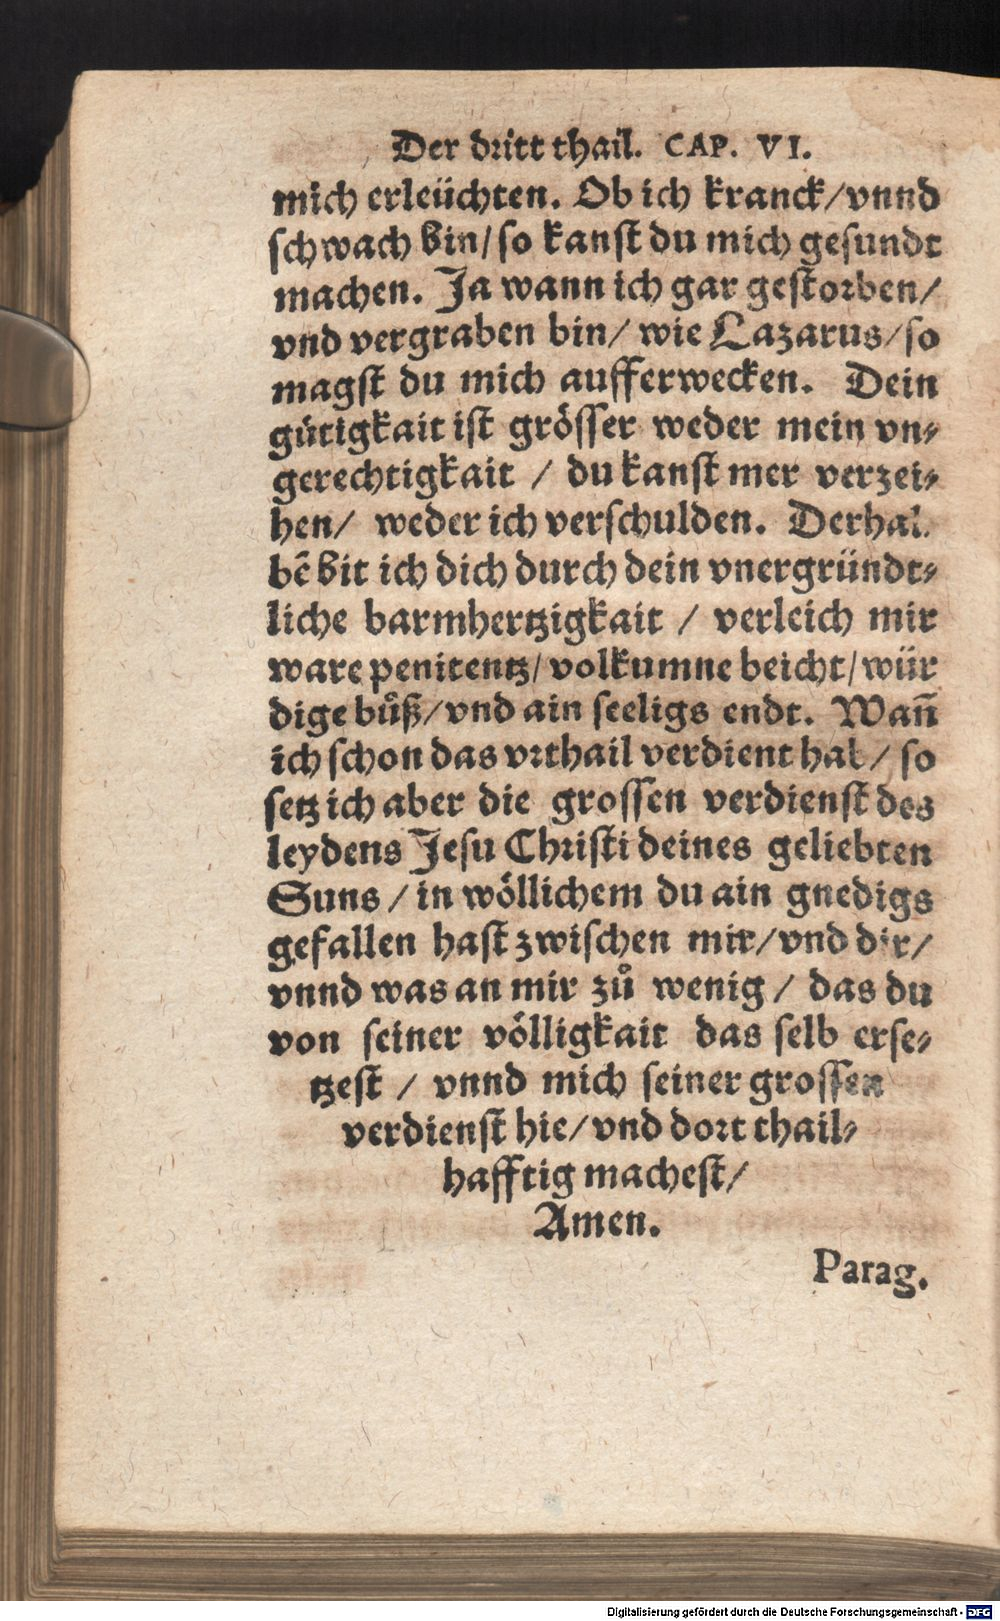 Der dritt thail. CAP. VI.
mich erleüchten. Ob ich kranck/vnnd
schwach bin/so kanst du mich gesundt
machen. Ja wann ich gar gestorben/
vnd vergraben bin/ wie Lazarus/so
magst du mich aufferwecken. Dein
gütigkait ist grösser weder mein vn-
gerechtigkait / du kanst mer verzei-
hen/ weder ich verschulden. Derhal
bẽ bit ich dich durch dein vnergründt-
liche barmhertzigkait / verleich mir
ware penitentz/volkumne beicht/wür
dige bůß/vnd ain seeligs endt. Wañ
ich schon das vrthail verdient hab/ so
setz ich aber die grossen verdienst des
leydens Jesu Christi deines geliebten
Suns / in wöllichem du ain gnedigs
gefallen hast zwischen mir/vnd dir/
vnnd was an mir zů wenig / das du
von seiner völligkait das selb erse-
tzest / vnnd mich seiner grossen
verdienst hie/vnd dort thail-
hafftig machest/
Amen.
Parag.
Digitalisierung gefördert durch die Deutsche Forschungsgemeinschaft - DFG